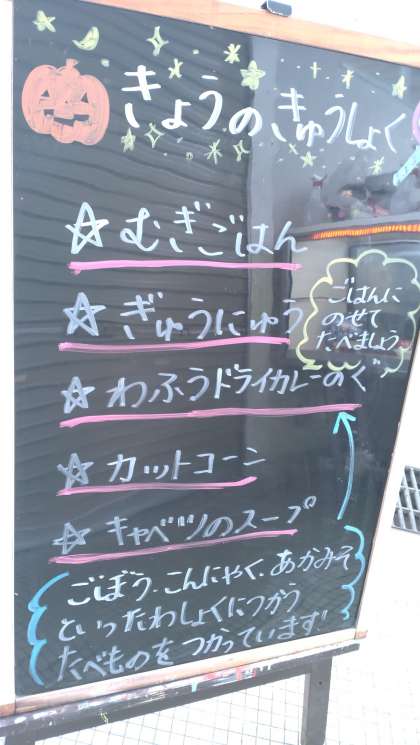 きょうのきゅうしょく
☆むぎごはん
☆ぎゅうにゅう
ごはんに
のせて
たべましょう
☆わふうドライカレーのぐ
☆カットコーン
☆キャベツのスープ
ごぼう、こんにゃく、あかみそ
といったわしょくにつかう
たべものをつかっています!